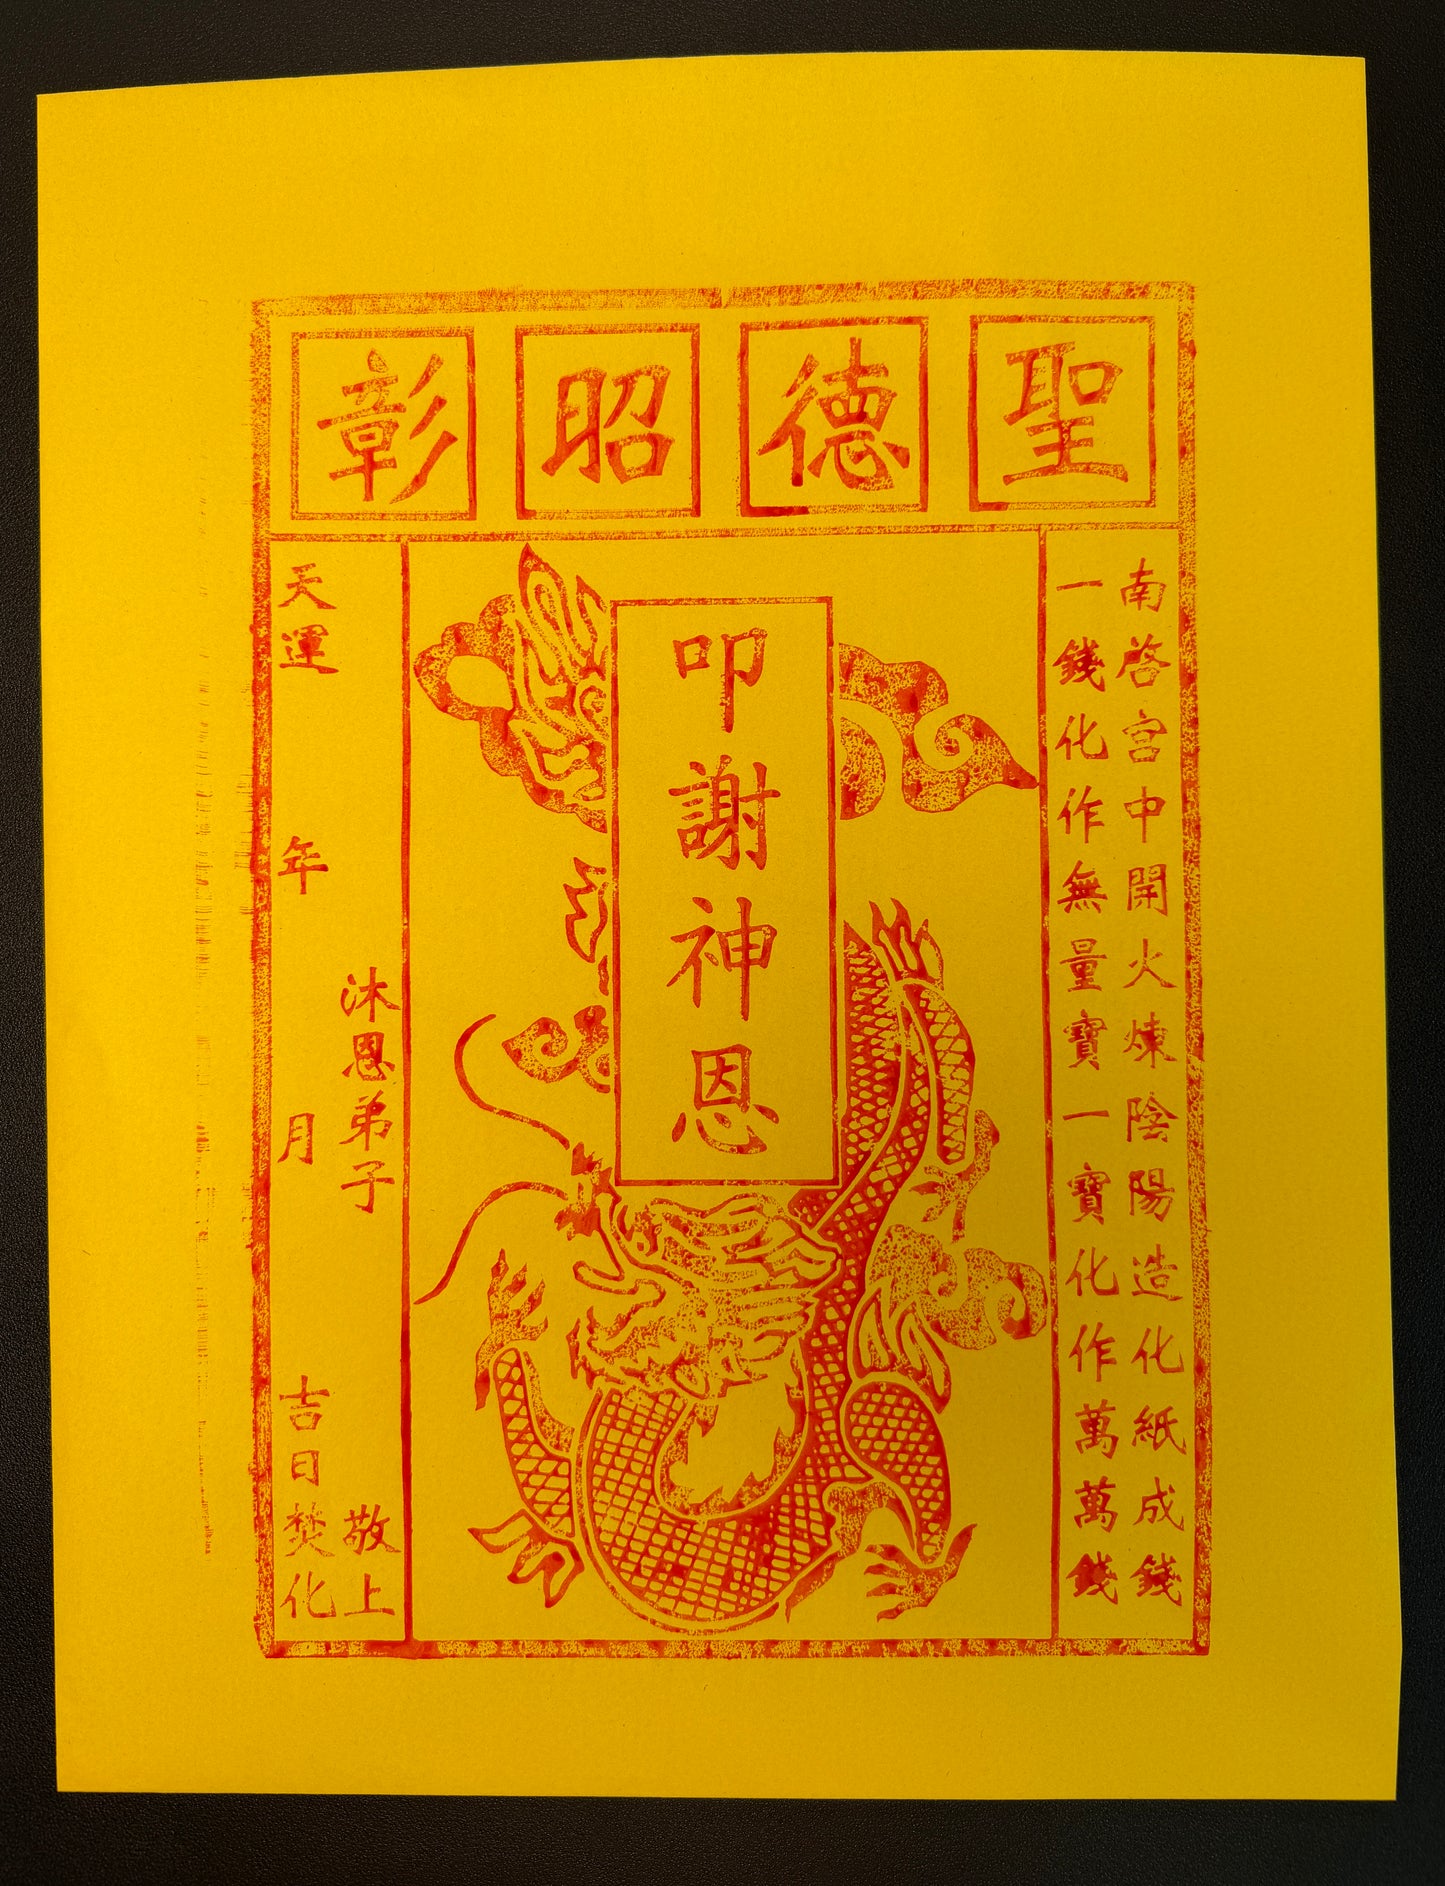 聖德昭彰
南啓宮中開火煉陰陽造化紙成錢
一錢化作無量寶一寶化作萬萬錢
叩謝神恩
沐恩弟子 敬上
天運 年 月 吉日焚化